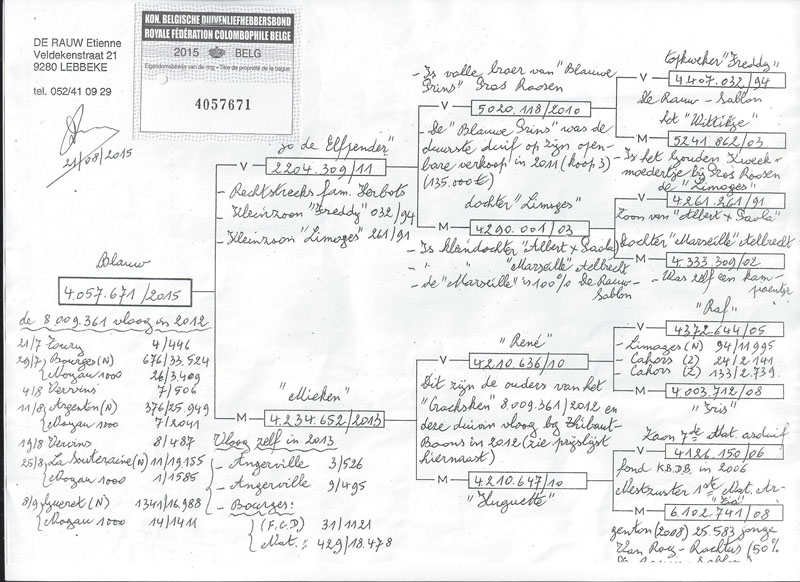 DE RAUW Etienne
Veldekenstraat 21
9280 LEBBEKE
tel. 052/41 09 29
21/08/2015
KON. BELGISCHE DUIVENLIEFHEBBERSBOND
ROYALE FÉDÉRATION COLOMBOPHILE BELGE
2015 BELG
Eigendomsbewijs van de ring - Titre de propriété de la bague
4057671
Blauw
4.057.671/2015
de 8.009.361 vloog in 2012
21/7 Toury 4/446
29/7 Bourges (N) 676/33.524
Mozau 1000 26/3.409
4/8 Vervins 7/506
11/8 Argenton (N) 376/25.949
Mozau 1000 7/2041
19/8 Vervins 8/487
25/8 La Souteraine (N) 11/19.155
Mozau 1000 1/1585
8/9 Gueret (N) 1341/16.988
Mozau 1000 14/1411
zo de Elfzender"
V 2204.309/11
- Rechtstreeks fam. Herbots
- Kleinzoon "Freddy" 032/94
- Kleinzoon "Limoges" 261/91
"Mieken"
M 4.234.652/2013
Vloog zelf in 2013
- Angerville 3/526
- Angerville 9/495
- Bourges:
(F.C.D) 31/1121
Nat.: 429/18.478
- Is volle broer van "Blauwe
Prins" Gros Roosen
V 5020.118/2010
- De "Blauwe Prins" was de
duurste duif op zijn open-
bare verkoop in 2011 (koop 3)
(135.000 €)
dochter "Limoges"
M 4290.001/03
- Is kleindochter "Albert + Paola"
- " " "Marseille" Aelbrecht
- de "Marseille" is 100% De Rauw-
Sablon
"René"
V 4210.636/10
Dit zijn de ouders van het
"Cracksken" 8.009.361/2012 en
deze duivin vloog bij Thibaut-
Boons in 2012 (zie prijslijst
hiernaast)
M 4210.647/10
"Huguette"
topkweker "Freddy"
V 4.407.032/94
De Rauw - Sablon
het "Wittikje"
M 5241 862/03
- Is het Gouden Kweek-
moedertje bij Gros Roosen
de "Limoges"
V 4261.261/91
Zoon van "Albert + Paola"
Dochter "Marseille" Aelbrecht
M 4.333.309/02
- Was zelf een kam-
pioentje
"Raf"
V 4372.644/05
- Limoges (N) 94/11995
- Cahors (Z) 24/2.141
- Cahors (Z) 133/2.739
M 4.003.712/08
"Iris"
Zoon 7de Nat. asduif
V 4126.150/06
fond K.B.D.B. in 2006
Nestzuster 1ste Nat. Ar-
M 6.102.741/08
genton (2008) 25.583 jonge
Van Roy - Rochtus (50%